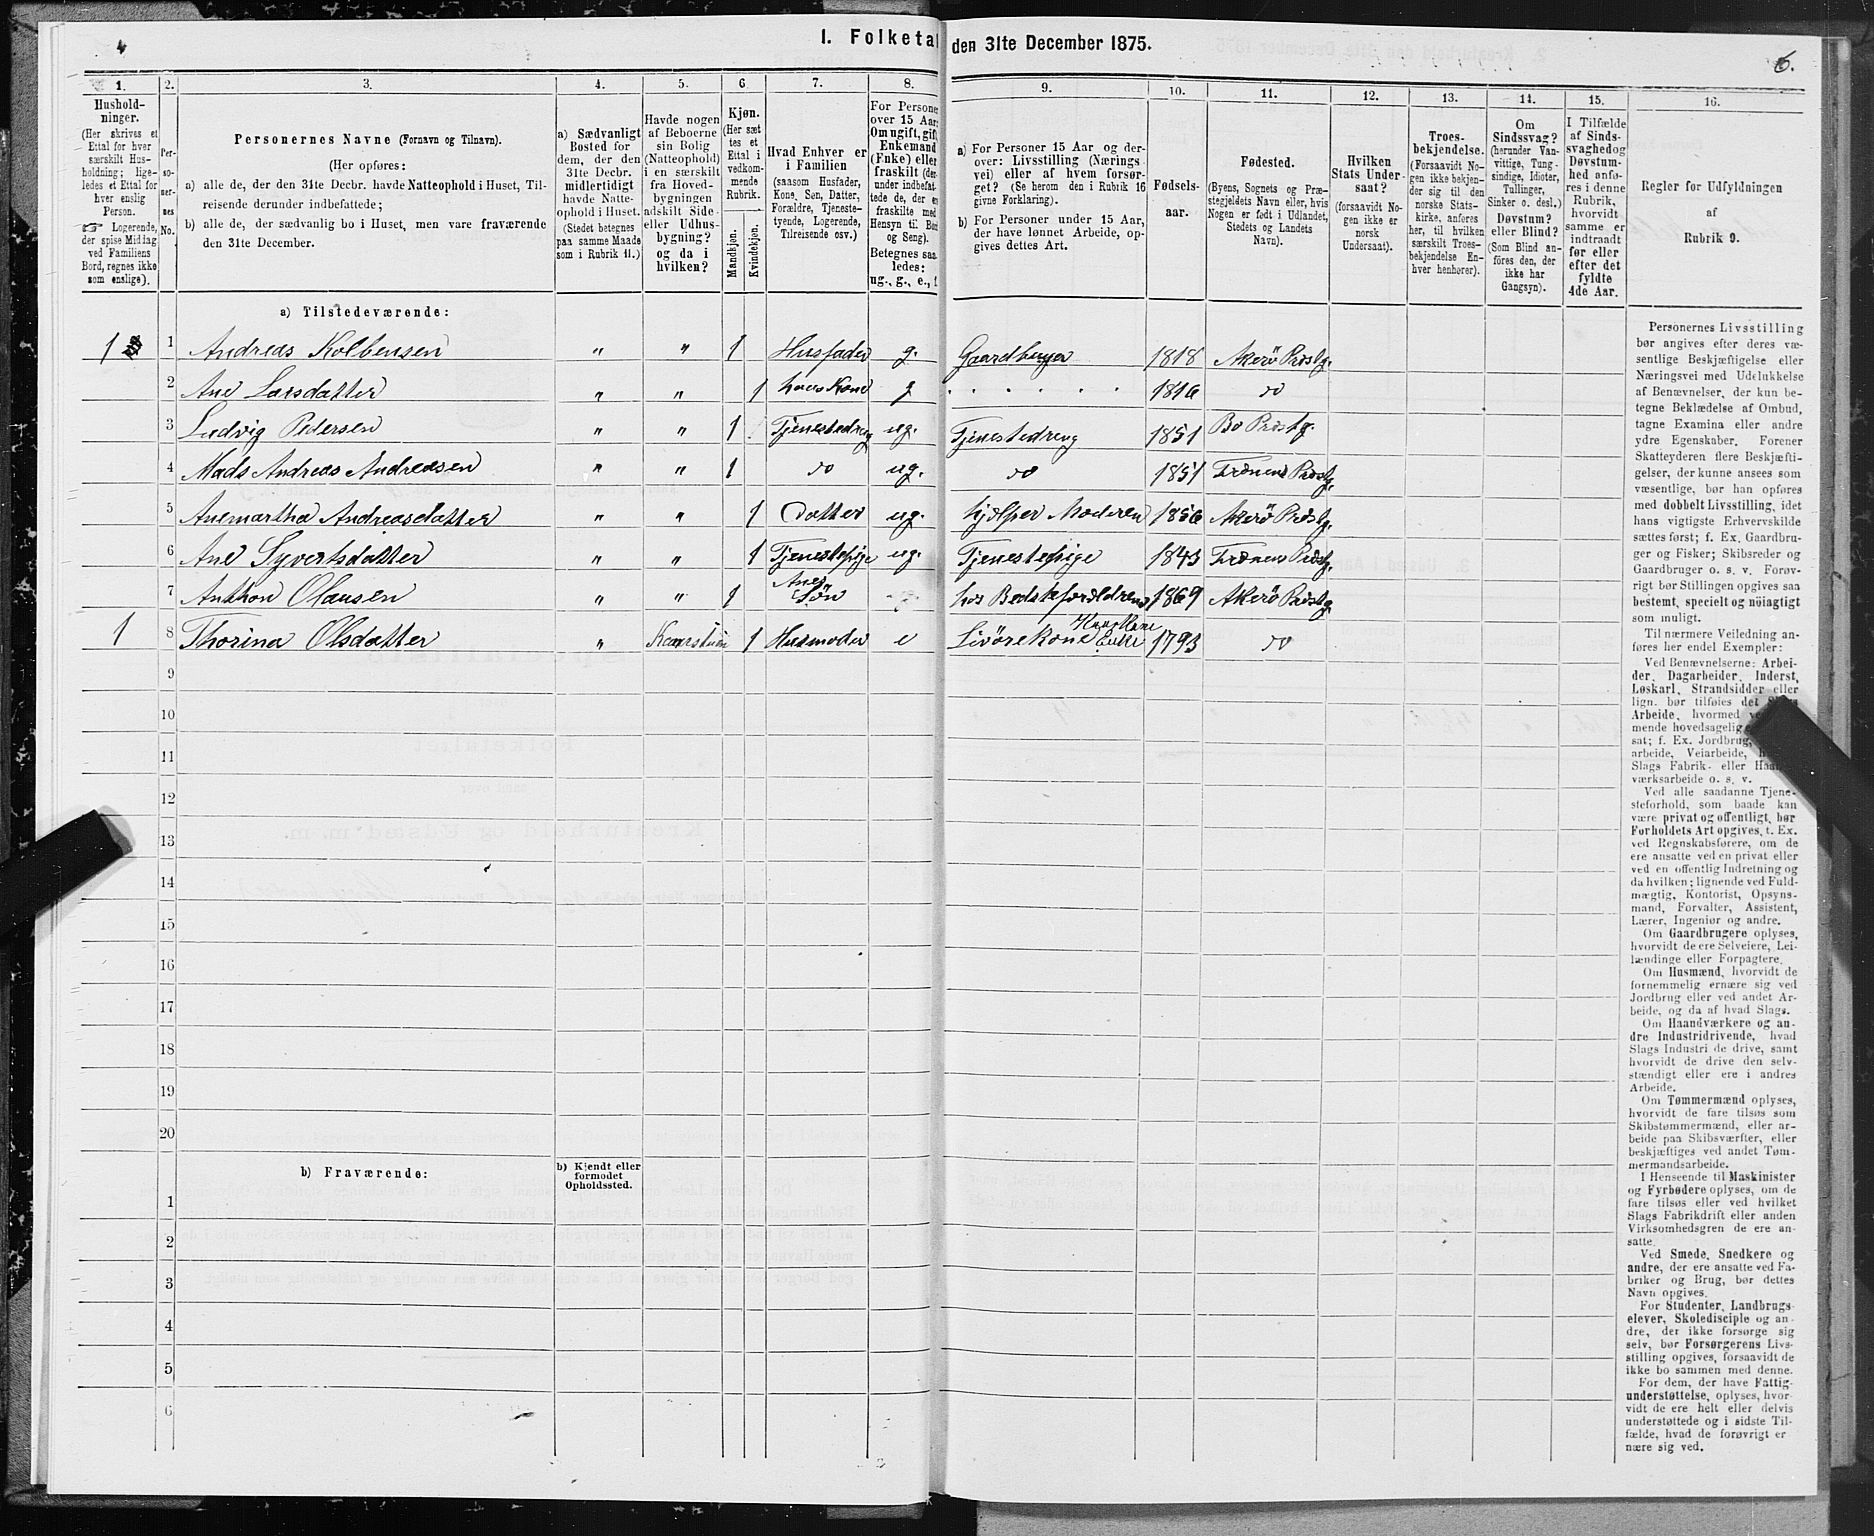 4
I. Folketal den 31te December 1875.
6.
1.
Hushold-
ninger.
(Her skrives et
Ettal for hver
særskilt Hus-
holdning; lige-
ledes et Ettal for
hver enslig
Person.
☞ Logerende,
der spise Middag
ved Familiens
Bord, regnes ikke
som enslige).
2.
Per-
so-
ner-
nes
No.
3.
Personernes Navne (Fornavn og Tilnavn).
(Her opføres:
a) alle de, der den 31te Decbr. havde Natteophold i Huset, Til-
reisende derunder indbefattede;
b) alle de, der sædvanlig bo i Huset, men vare fraværende
den 31te December.
4.
a) Sædvanligt
Bosted for
dem, der den
31te Decbr.
midlertidigt
havde Natte-
ophold i Huset.
(Stedet betegnes
paa samme Maade
som i Rubrik 11.)
5.
Havde nogen
af Beboerne
sin Bolig
(Natteophold)
i en særskilt
fra Hoved-
bygningen
adskilt Side-
eller Udhus-
bygning?
og da i
hvilken?
6.
Kjøn.
(Her sæt-
tes et
Ettal i
vedkom-
mende
Rubrik.
Mandkjøn.
Kvindekjøn.
7.
Hvad Enhver er
i Familien
(saasom Husfader,
Kone, Søn, Datter,
Forældre, Tjeneste-
tyende, Logerende,
Tilreisende osv.)
8.
For Personer
over 15 Aar:
Om ugift, gift,
Enkemand
(Enke) eller
fraskilt (der-
under indbefat-
tede de, der ere
fraskilte med
Hensyn til Bord
og Seng).
Betegnes saa-
ledes:
ug., g., e., f.
9.
a) For Personer 15 Aar og der-
over: Livsstilling (Nærings-
vei) eller af hvem forsør-
get? (Se herom den i Rubrik 16
givne Forklaring).
b) For Personer under 15 Aar,
der have lønnet Arbeide, op-
gives dettes Art.
10.
Fødsels-
aar.
11.
Fødested.
(Byens, Sognets og Præ-
stegjeldets Navn eller, hvis
Nogen er født i Udlandet,
Stedets og Landets
Navn).
12.
Hvilken
Stats Under-
saat?
(forsaavidt No-
gen ikke er
norsk
Undersaat).
13.
Troes-
bekjendelse.
(Forsaavidt No-
gen ikke bekjen-
der sig til den
norske Stats-
kirke, anføres
her, til hvilken
særskilt Troes-
bekjendelse En-
hver henhører).
14.
Om
Sindssvag?
(herunder Van-
vittige, Tung-
sindige, Idioter,
Tullinger,
Sinker o. desl.)
Døvstum?
eller Blind?
(Som Blind an-
føres den, der
ikke har
Gangsyn).
15.
I Tilfælde
af Sinds-
svaghed og
Døvstum-
hed anfø-
res i denne
Rubrik,
hvorvidt
samme er
indtraadt
før eller
efter det
fyldte
4de Aar.
16.
Regler for Udfyldningen
af
Rubrik 9.
a) Tilstedeværende:
1 1 Andreas Kolbensen " " 1 Husfader g. Gaardbruger 1818 Akerö Præstg.
2 Ane Larsdatter " " 1 hans Kone g 1816 do
3 Ludvig Pedersen " " 1 Tjenestedreng ug. Tjenestedreng 1851 Bo Præstg.
4 Mads Andreas Andreasen " " 1 do ug. do 1851 Frænens Præstg.
5 Anemartha Andreasdatter " " 1 Datter ug. hjælper Moderen 1856 Akerö Præstg.
6 Ane Syvertsdatter " " 1 Tjenestepige ug. Tjenestepige 1843 Frænens Præstg.
7 Anthon Olausen " " 1 Anes Søn hos Bedsteforældrene 1869 Akerö Præstg.
1 8 Thorina Olsdatter " Kaarstuen 1 Husmoder e Livörekone Enke 1793 do
9
10
11
12
13
14
15
16
17
18
19
20
b) Fraværende:
b) Kjendt eller
formodet
Opholdssted.
1
2
3
4
5
6
Personernes Livsstilling
bør angives efter deres væ-
sentlige Beskjæftigelse eller
Næringsvei med Udelukkelse
af Benævnelser, der kun be-
tegne Beklædelse af Ombud,
tagne Examina eller andre
ydre Egenskaber. Forener
Skatteyderen flere Beskjæfti-
gelser, der kunne ansees som
væsentlige, bør han opføres
med dobbelt Livsstilling, idet
hans vigtigste Erhvervskilde
sættes først; f. Ex. Gaardbru-
ger og Fisker; Skibsreder og
Gaardbruger o. s. v. Forøv-
rigt bør Stillingen opgives saa
bestemt, specielt og nöiagtigt
som muligt.
Til nærmere Veiledning an-
føres her endel Exempler:
Ved Benævnelserne: Arbei-
der, Dagarbeider, Inderst,
Løskarl, Strandsidder eller
lign. bør tilføies det Slags
Arbeide, hvormed ved-
mende hovedsagelig
sat; f. Ex. Jordbrug,
arbeide, Veiarbeide,
Slags Fabrik- eller Haand-
værksarbeide o. s. v.
Ved alle saadanne Tjene-
steforhold, som baade kan
være privat og offentligt, bør
Forholdets Art opgives, t. Ex.
ved Regnskabsførere, om de
ere ansatte ved en privat eller
ved en offentlig Indretning og
da hvilken; lignende ved Fuld-
mægtig, Kontorist, Opsyns-
mand, Forvalter, Assistent,
Lærer, Ingeniør og andre.
Om Gaardbrugere oplyses,
hvorvidt de ere Selveiere, Lei-
lændinge eller Forpagtere.
Om Husmænd, hvorvidt de
fornemmelig ernære sig ved
Jordbrug eller ved andet Ar-
beide, og da af hvad Slags.
Om Haandværkere og an-
dre Industridrivende, hvad
Slags Industri de drive, samt
hvorvidt de drive den selv-
stændigt eller ere i andres
Arbeide.
Om Tømmermænd oplyses,
hvorvidt de fare tilsøs som
Skibstømmermænd, eller ar-
beide paa Skibsværfter, eller
beskjæftiges ved andet Tøm-
mermandsarbeide.
I Henseende til Maskinister
og Fyrbødere oplyses, om de
fare tilsøs eller ved hvilket
Slags Fabrikdrift eller anden
Virksomhedsgren de ere an-
satte.
Ved Smede, Snedkere og
andre, der ere ansatte ved Fa-
briker og Brug, bør dettes
Navn opgives.
For Studenter, Landbrugs-
elever, Skoledisciple og an-
dre, der ikke forsørge sig
selv, bør Forsørgerens Livs-
stilling opgives, forsaavidt de
ikke bo sammen med denne.
For dem, der have Fattig-
understøttelse, oplyses, hvor-
vidt de ere helt eller delvis
understøttede og i sidste Til-
fælde, hvad de forøvrigt er-
nære sig ved.